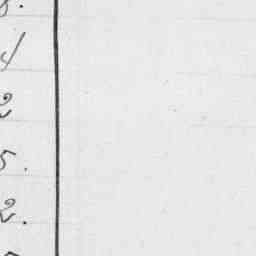 4
2
5.
2.